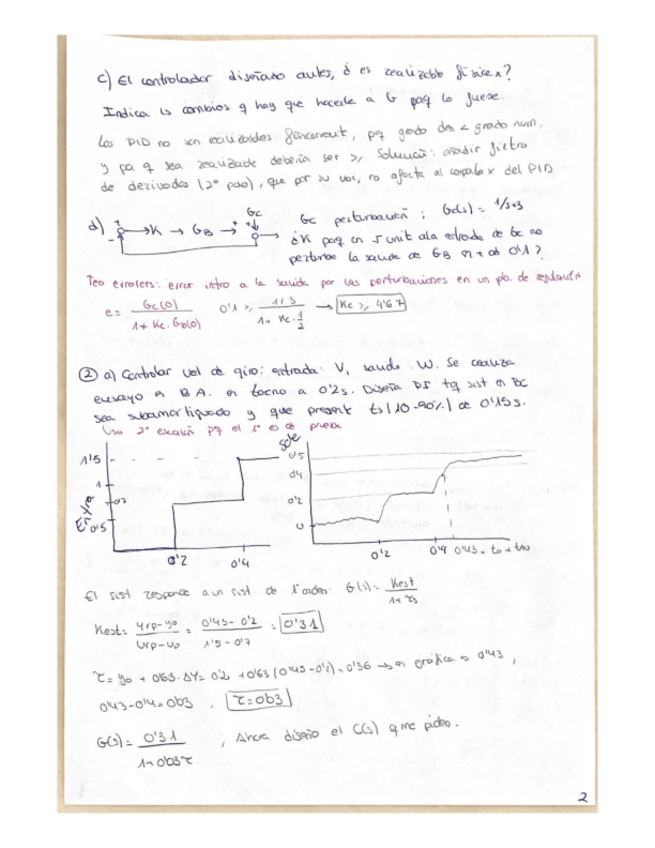 c) El controlador diseñado antes, ¿ es realizable física?
Indica ls cambios q hay que hacerle a G paq lo fuese.
Los PID no son realizables físicament, pq grado den < grado num,
y pa q sea realizable debería ser ≥, Solución: añadir filtro
de derivadas (2º polo), que por su vez, no afecta al compl del PID
d) + → K → GB → + Gc Gc perturbación ; Gc(s) = 1/s+3
¿K paq en 5 unit a la entrada de Gc no
perturbe la salida de GB en + de 0'1 ?
Teo errores: error intro a la salida por las perturbaciones en un pb. de regulación
e = Gc(0) / 1 + Kc · Gb(0) 0'1 ≥ 1/3 / 1 + Kc · 1/2 → Kc ≥ 4'67
② a) Controlar vel de giro: entrada: V, salida W. Se realiza
ensayo en B.A. en torno a 0'2s. Diseña PI tq sist en BC
sea subamortiguado y que present ts (10-90%) de 0'15s.
Uso 2º escalón pq el 1º es de prueba
1'5
1
0'7
0'5
0'2
0'4
0'5
0'4
0'2
0
0'2
0'4 0'43 = to +
El sist responde a un sist. de 1º orden. G(s) = Kest / 1 + τs
Kest = yrp - yo / Urp - Uo = 0'45 - 0'2 / 1'5 - 0'7 = 0'31
τ = yo + 0'63 · ΔY = 0'2 + 0'63 (0'45 - 0'2) = 0'36 → en gráfica = 0'43 ,
0'43 - 0'4 = 0'03 , τ = 0'03
G(s) = 0'31 / 1 + 0'03τ , Ahora diseño el C(s) q me piden.
2